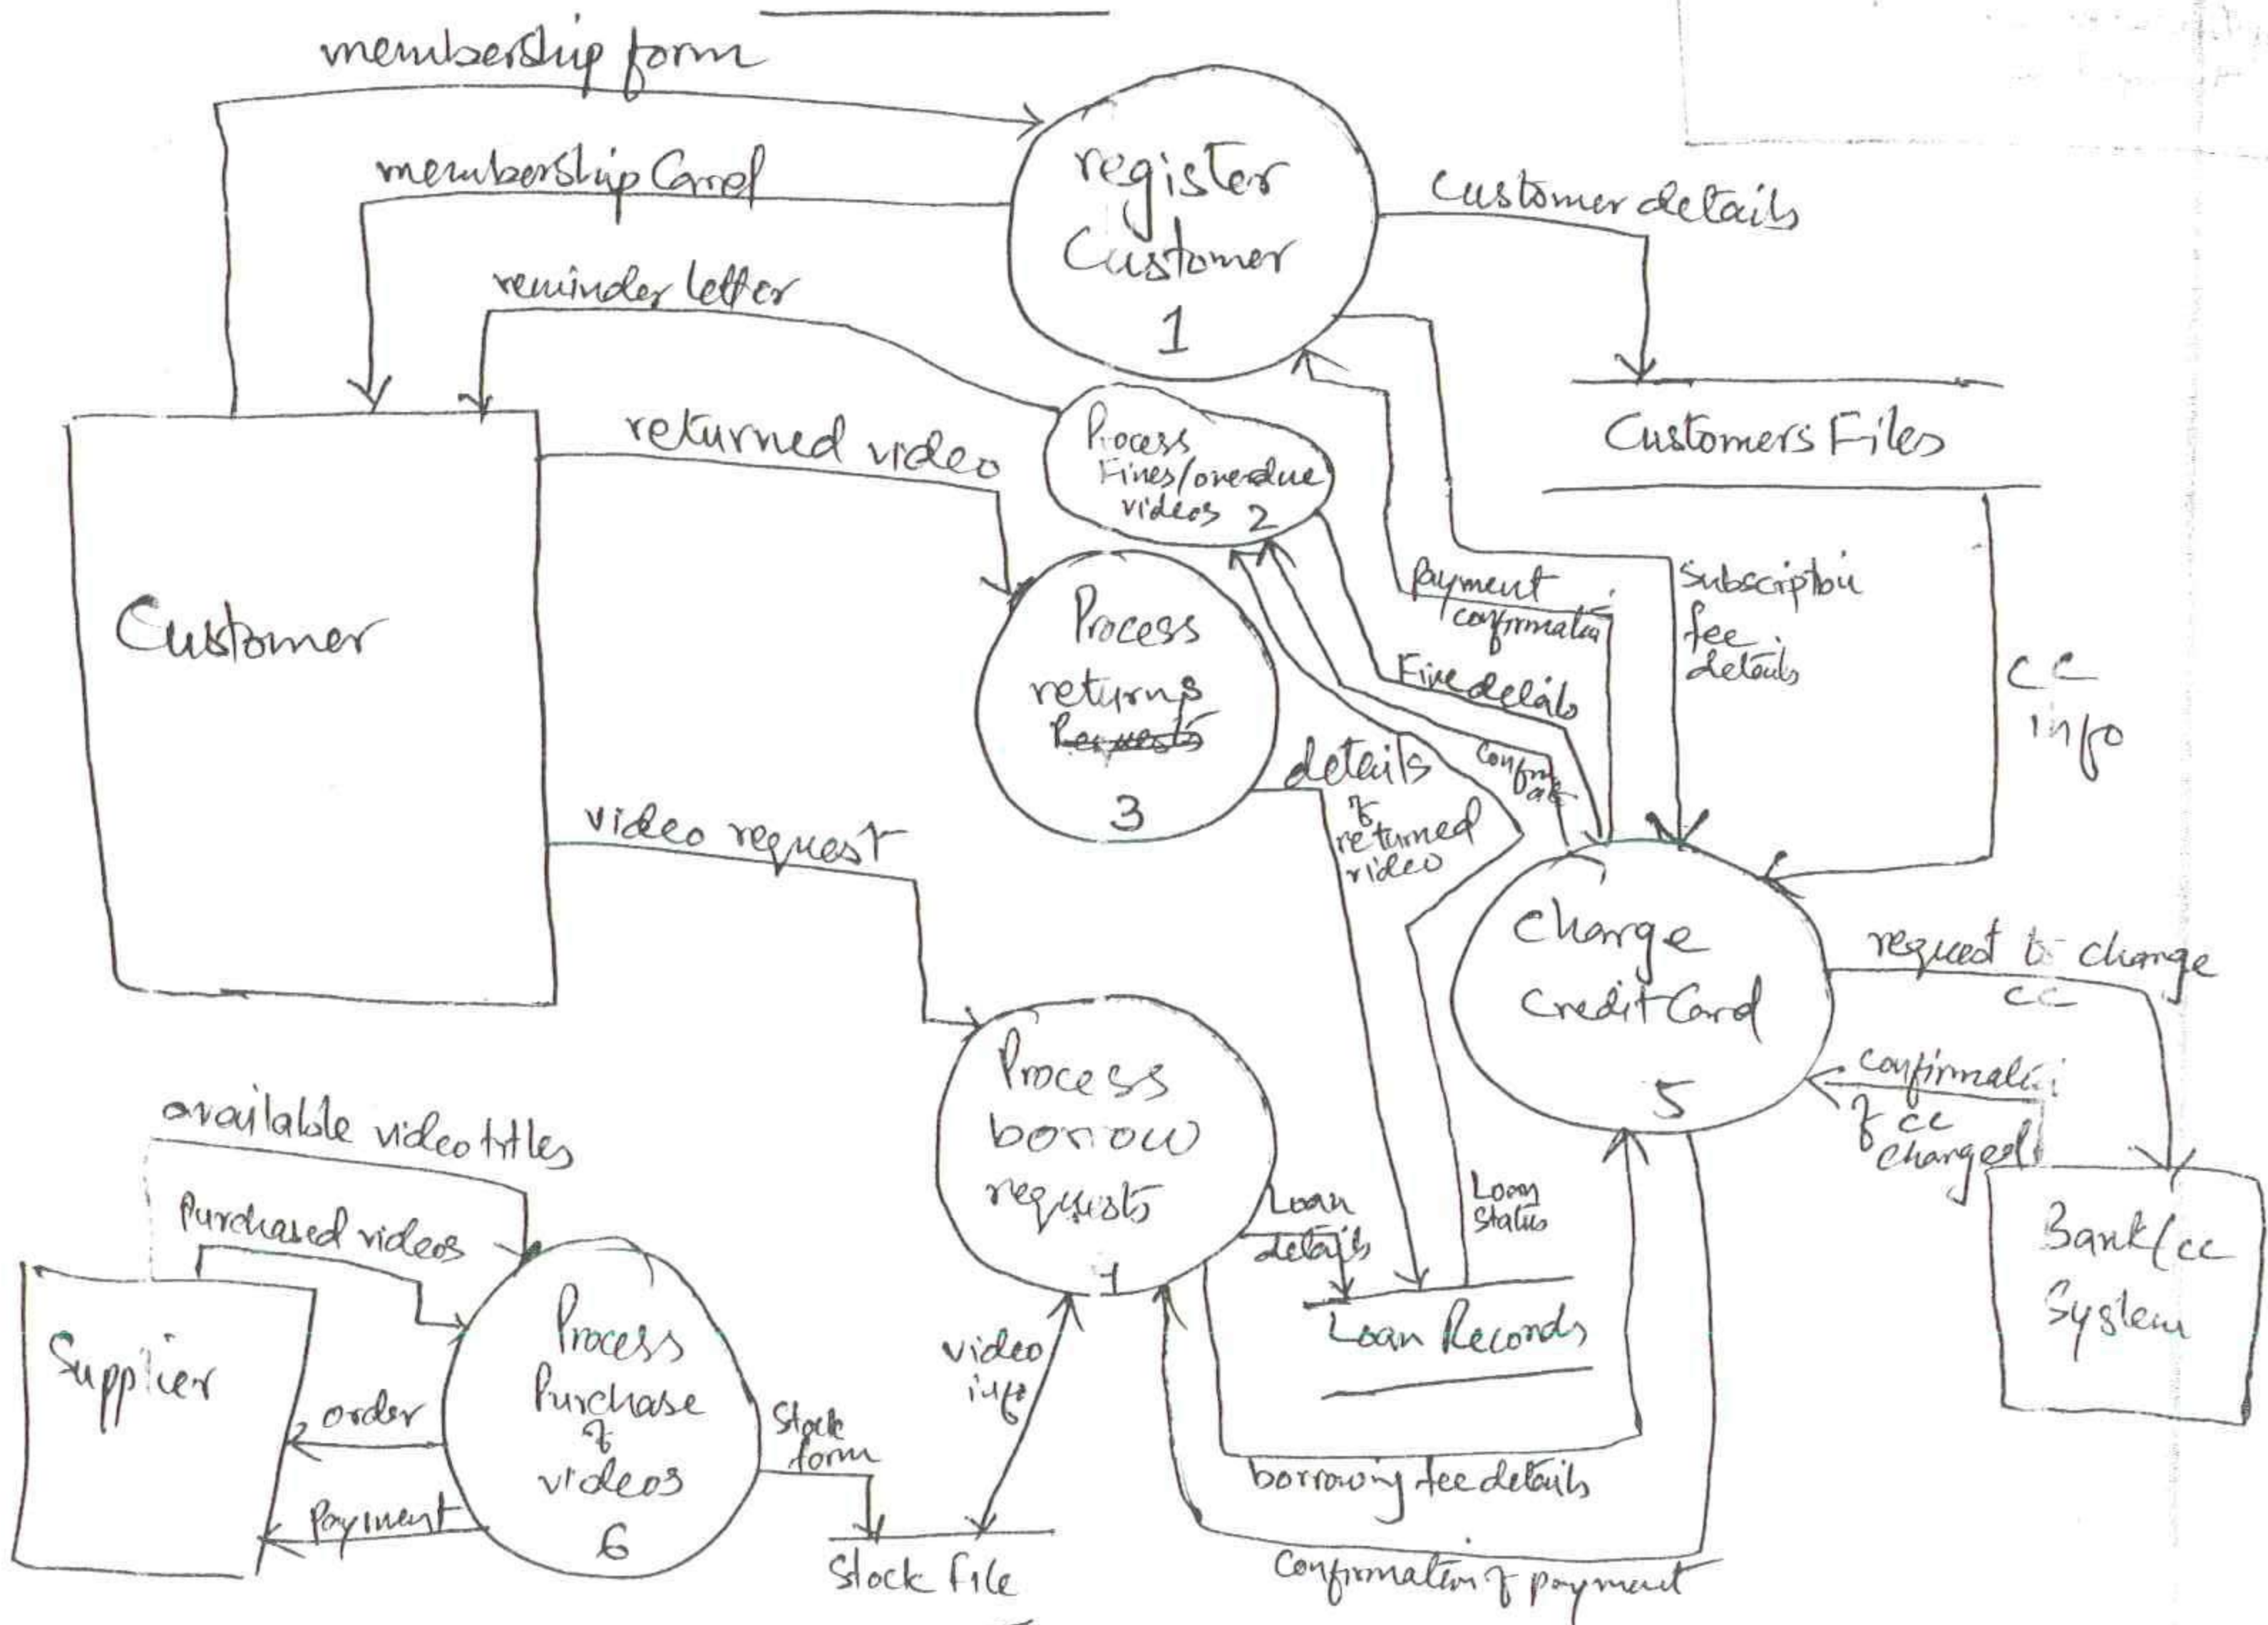 membership form
membership Card
reminder letter
register
Customer
1
Customer details
Customers Files
returned video
Process
Fines/overdue
videos 2
Customer
Process
returns
3
payment
confirmation
Subscription
fee
details
CC
info
Fine details
details
of
returned
video
video request
Charge
Credit Card
5
request to charge
CC
confirmation
of CC
charged
Bank/cc
System
Process
borrow
requests
Loan
details
Loan
Status
Loan Records
available video titles
Purchased videos
Supplier
order
Payment
Process
Purchase
of
videos
6
Stock
form
video
info
Stock File
borrowing fee details
Confirmation of payment